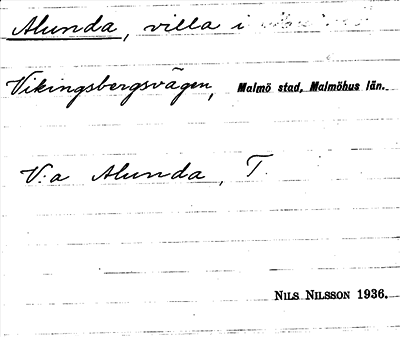 Alunda, villa i
Vikingsbergsvägen, Malmö stad, Malmöhus län.
V:a Alunda, T.
NILS NILSSON 1936.